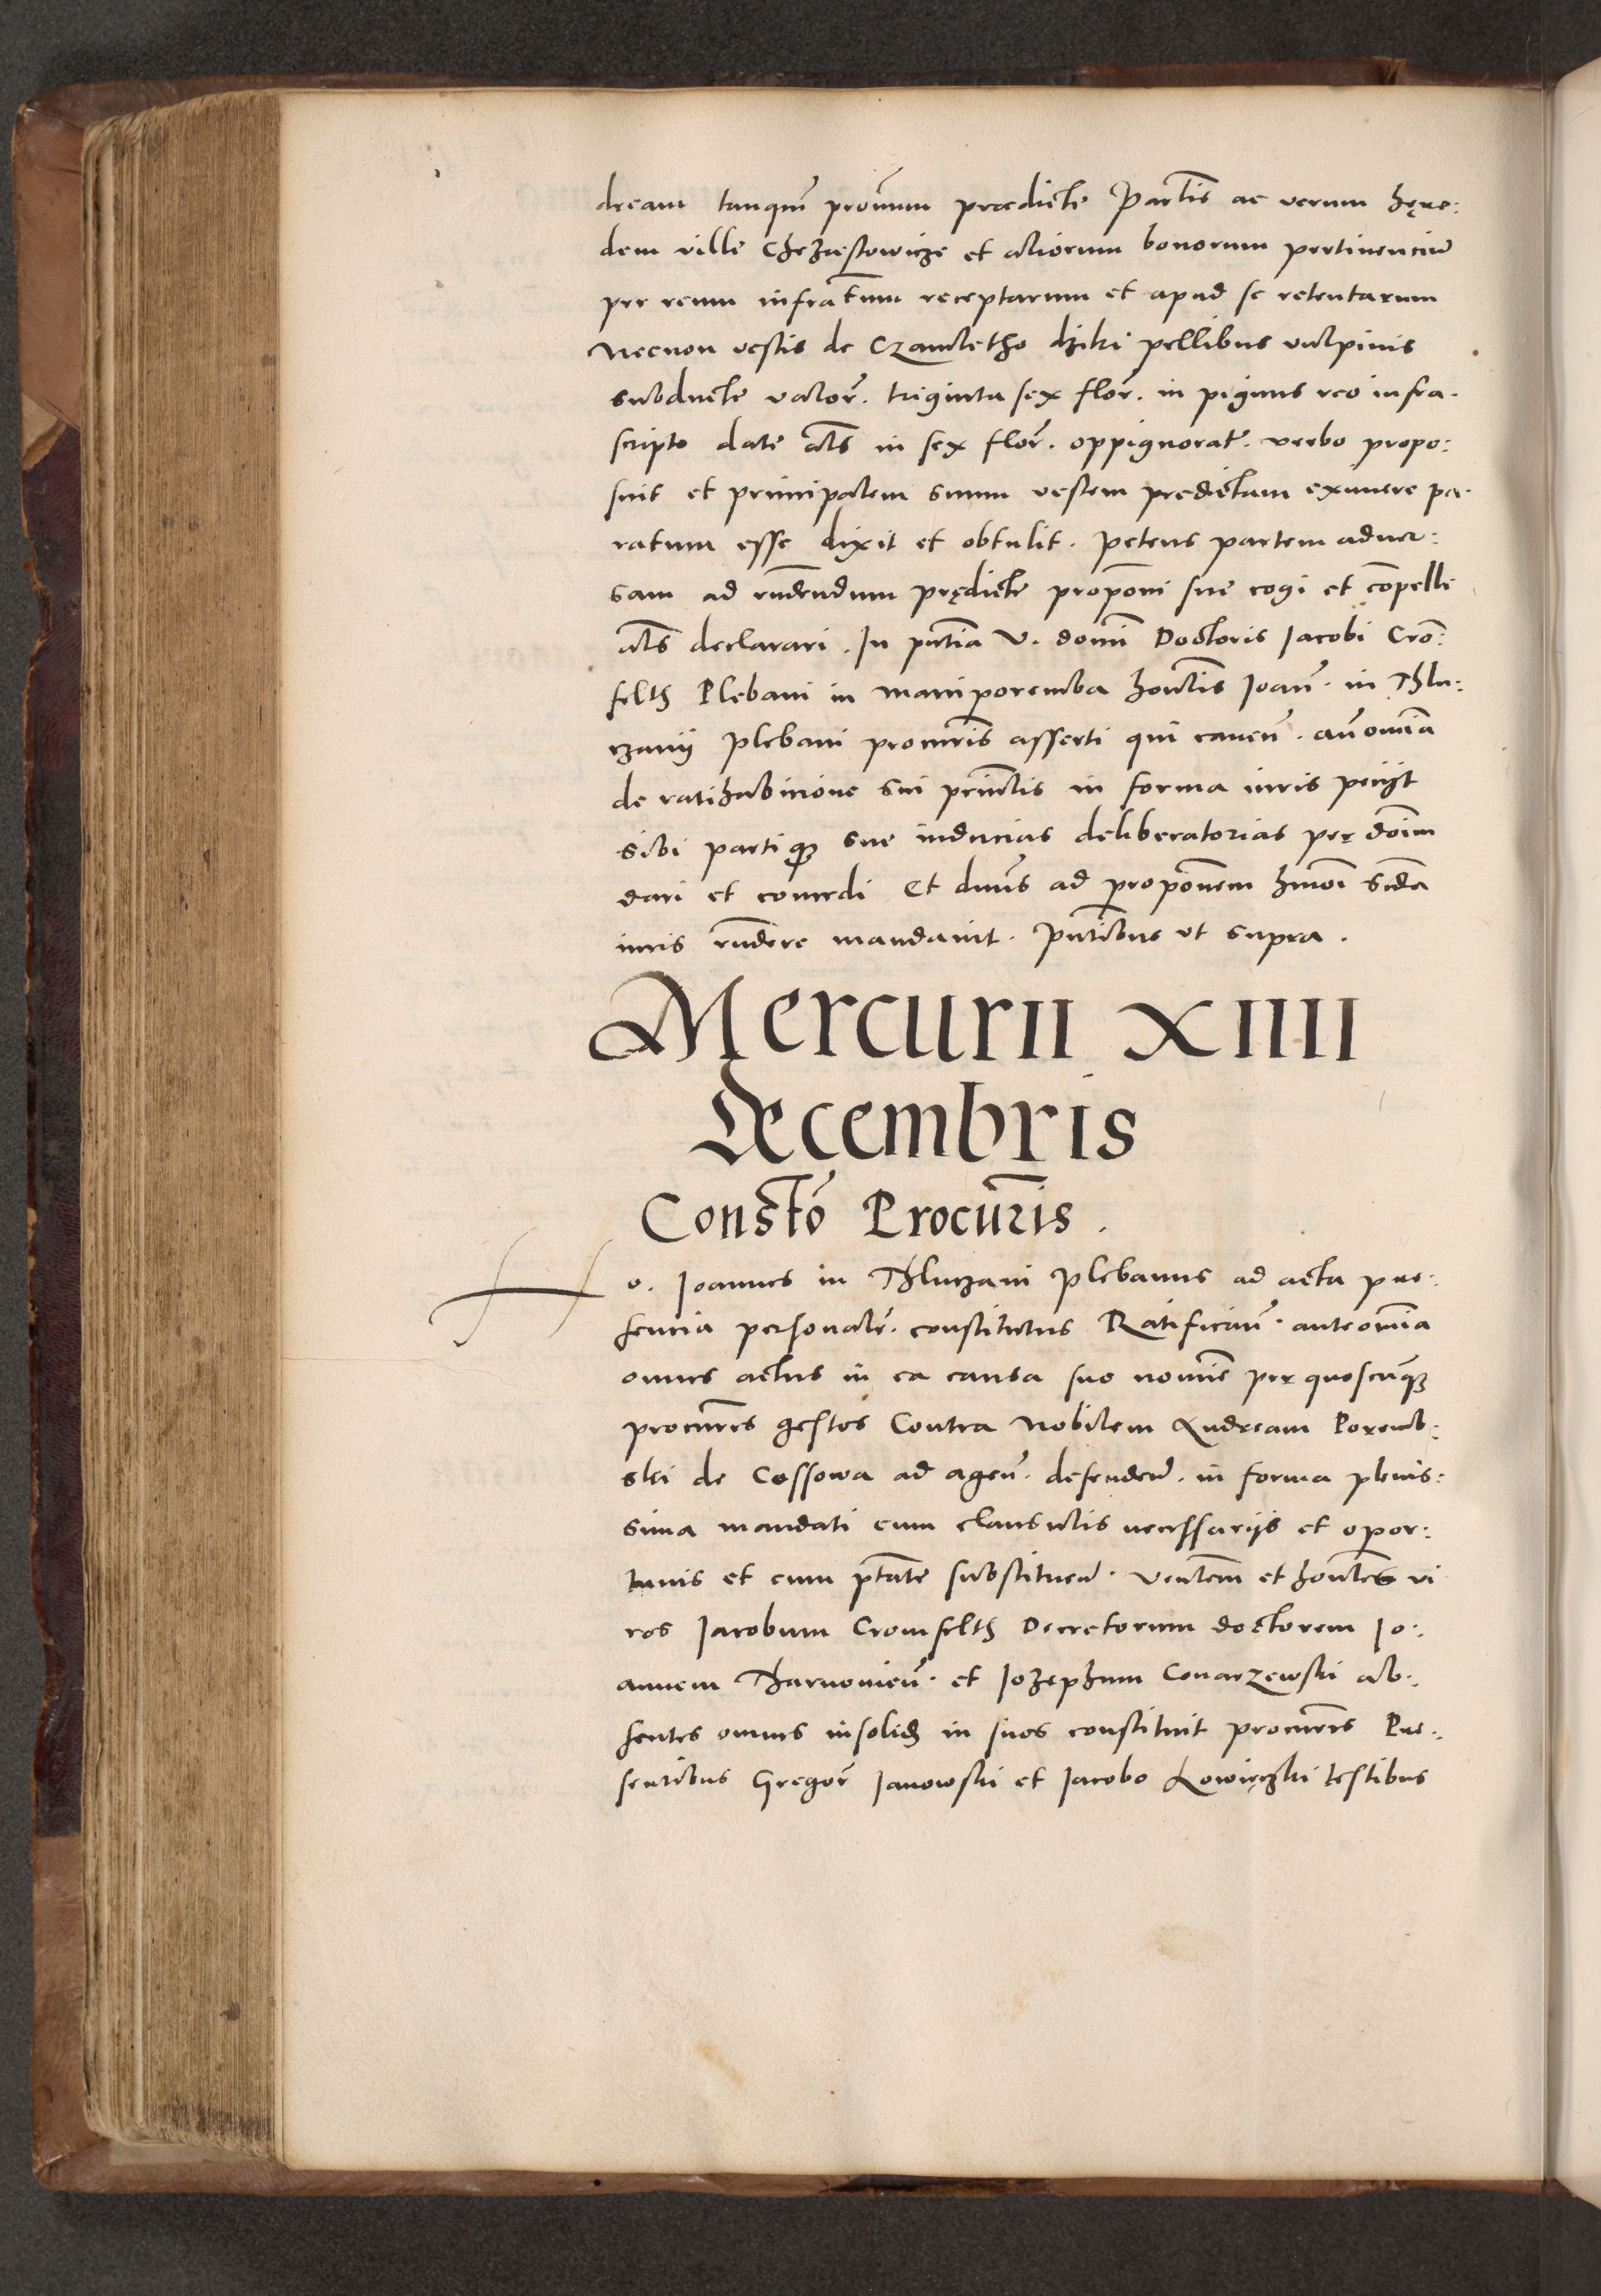 dream tanqm̃ proũnum prædicte Partis ac verum hęre:
dem ville Chrząstowicze et aliorum bonorum pertinenciũ
per reum infratum receptarum et apud se retentarum
Necnon vestis de Czamletho dziki pellibus vulpinis
subducte valor̃. triginta sex flor̃. in pignus reo infra.
scripto date als in sex flor̃. oppignorat̃. verbo propo:
suit et principalem suum vestem predictam exuuere pa.
ratum esse dixit et obtulit. Petens partem aduer:
sam ad rñdendum prędicte proponi sue cogi et cõpelli
als declarari. In pñtia V. domĩ Doctoris Jacobi Cro:
felth Plebani in maniporemba honlis Joañ. in Thlu:
czanij plebani procuris asserti qui caueñ. añomia
de ratihabicione sui prinlis in forma iuris petijt
sibi partiqꝫ sue inducias deliberatorias per doim
dari et concedi Et dnus ad proponem hmoi scda
iuris rñdere mandauit. Pñtibus vt supra.
Mercurii XIIII
Decembris
Constõ Procur̃is.
o. Joannes in Thluczani plebanus ad acta pre:
sencia personalẽ. constitutus Ratificañ. ante omia
omnes actus in ea causa suo nomine per quoscunqꝫ
procures gestos Contra Nobilem Andream Poremb:
ski de Cossowa ad ageñ. defendeñ. in forma plenis:
sima mandati cum clausulis necessarijs et opor:
tunis et cum ptate substitueñ. Venlem et honles vi
ros Jacobum Cromfelth Decretorum doctorem Jo:
annem Tharnouieñ. et Jozephum Conarzewski ab.
sentes omnes insolidꝫ in suos constituit procures Pre:
sentibus Gregor̃ Janowski et Jacobo Lowieczki testibus